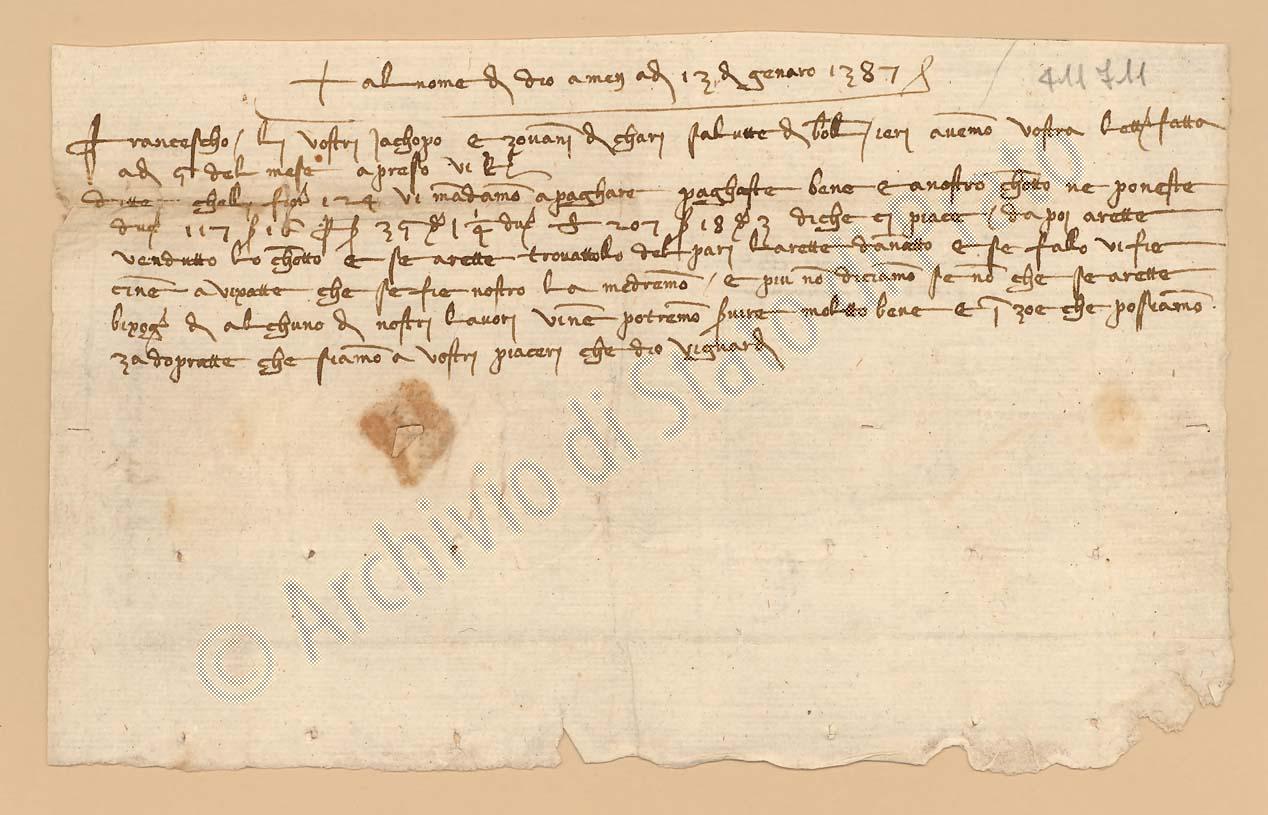 + al nome d dio amen ad 13 d genaro 1387
411 711
Francescho / li vostri Jachopo e zovani d chari salutte d boll / ieri avemo vostra lett fatta
ad 5 del mese apresso vi
ditte fior 124 vi mandamo a paghare paghaste bene e a nostro chotto ne poneste
117 16 35 207 18 3 di che ci piace / da poi arette
vendutto lo chotto e se arette trovattolo del pari l arette danatto e se fallo vi fie
cinen a vixatte che se fie nostro la medremo / e piu no diciamo se no che se arette
bixog d alchuno d nostri lavori vinen potremo svire moltto bene e i zoe che possiamo
zadopratte che siamo a vostri piaceri che dio vi guard
© Archivio di Stato di Prato